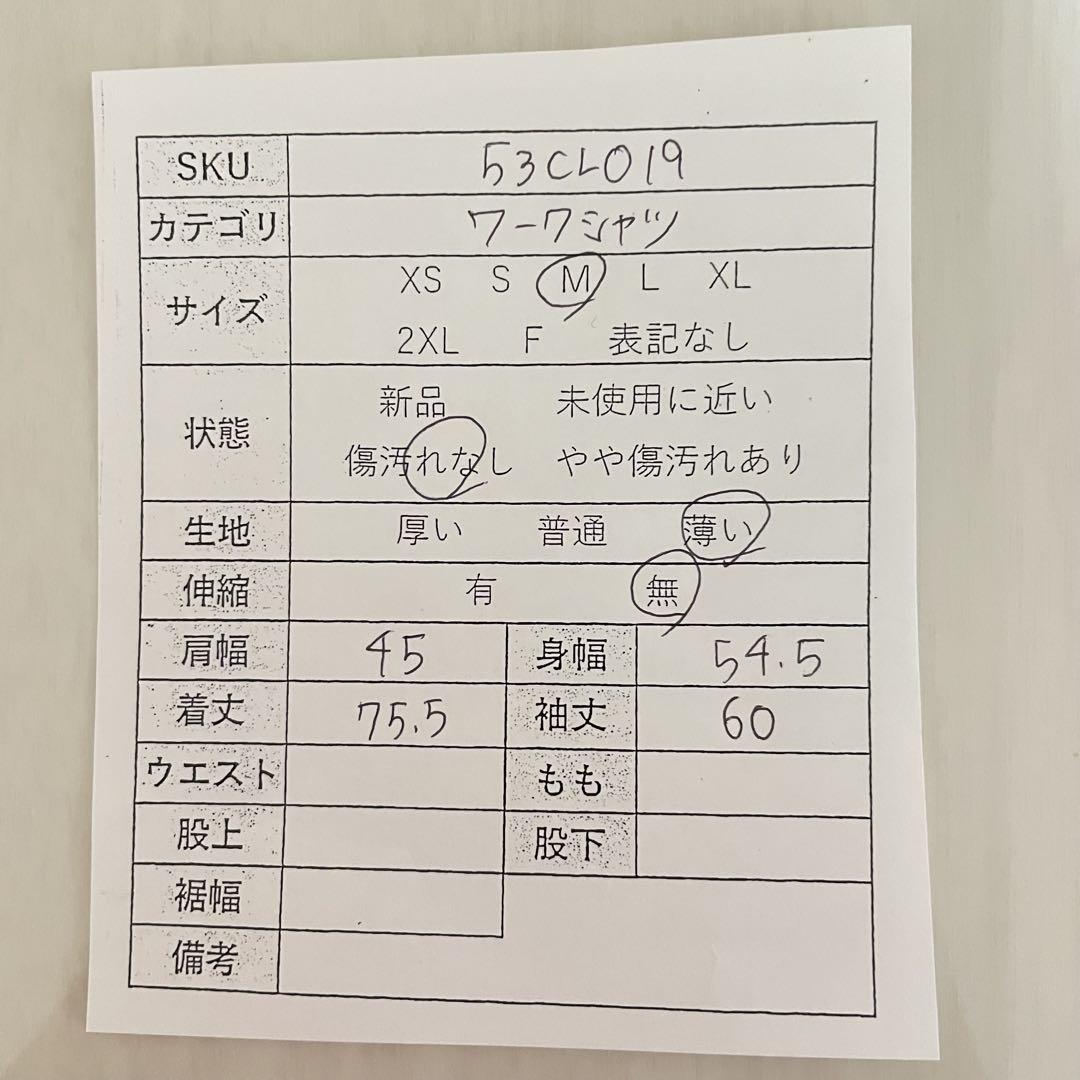 SKU 53CL019
カテゴリ ワークシャツ
サイズ XS S M L XL
2XL F 表記なし
状態 新品 未使用に近い
傷汚れなし やや傷汚れあり
生地 厚い 普通 薄い
伸縮 有 無
肩幅 45 身幅 54.5
着丈 75.5 袖丈 60
ウエスト もも
股上 股下
裾幅
備考